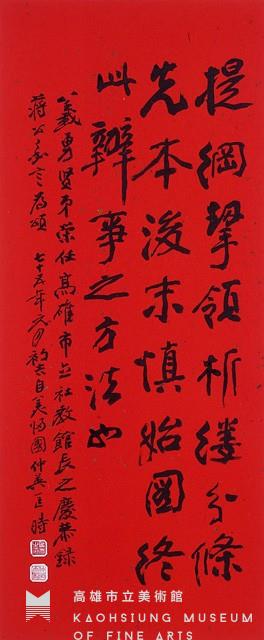 提綱挈領析縷分條
先本後末慎始圖終
此辦事之方法也
義勇賢弟榮任高雄市立社教館長之慶恭錄
蔣公嘉言為頌 七十五年元月初吉自美歸國仲英匡時
高雄市立美術館
KAOHSIUNG MUSEUM
OF FINE ARTS